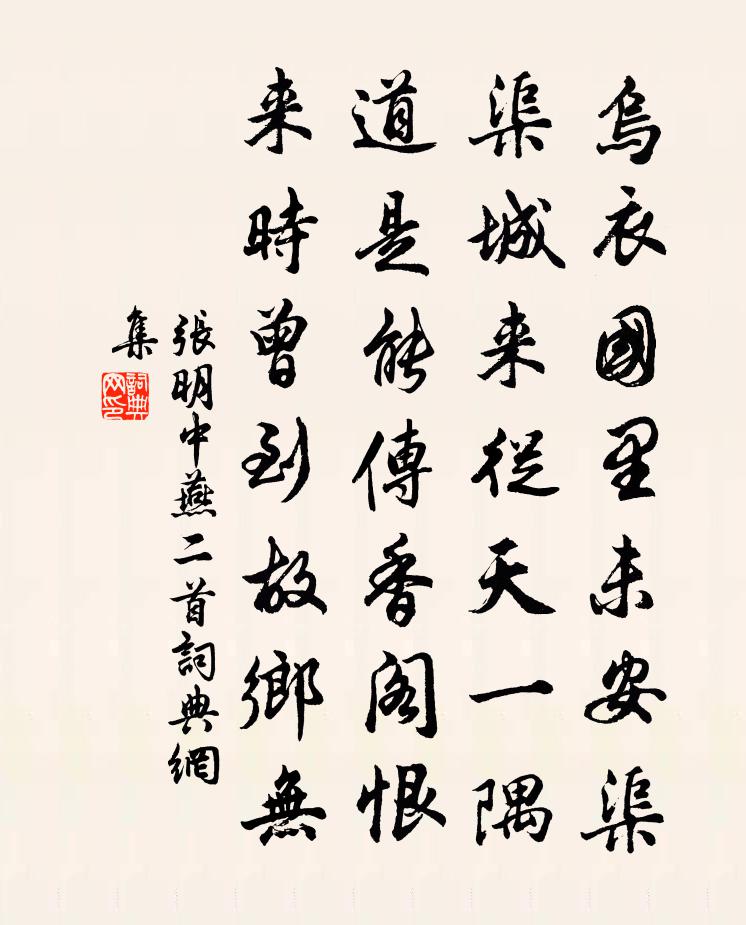 烏衣國里未安渠
渠城来從天一隅
道是能傳香阁恨
来時曾到故鄉無
張明中燕二首詞典網
集
詞典网印